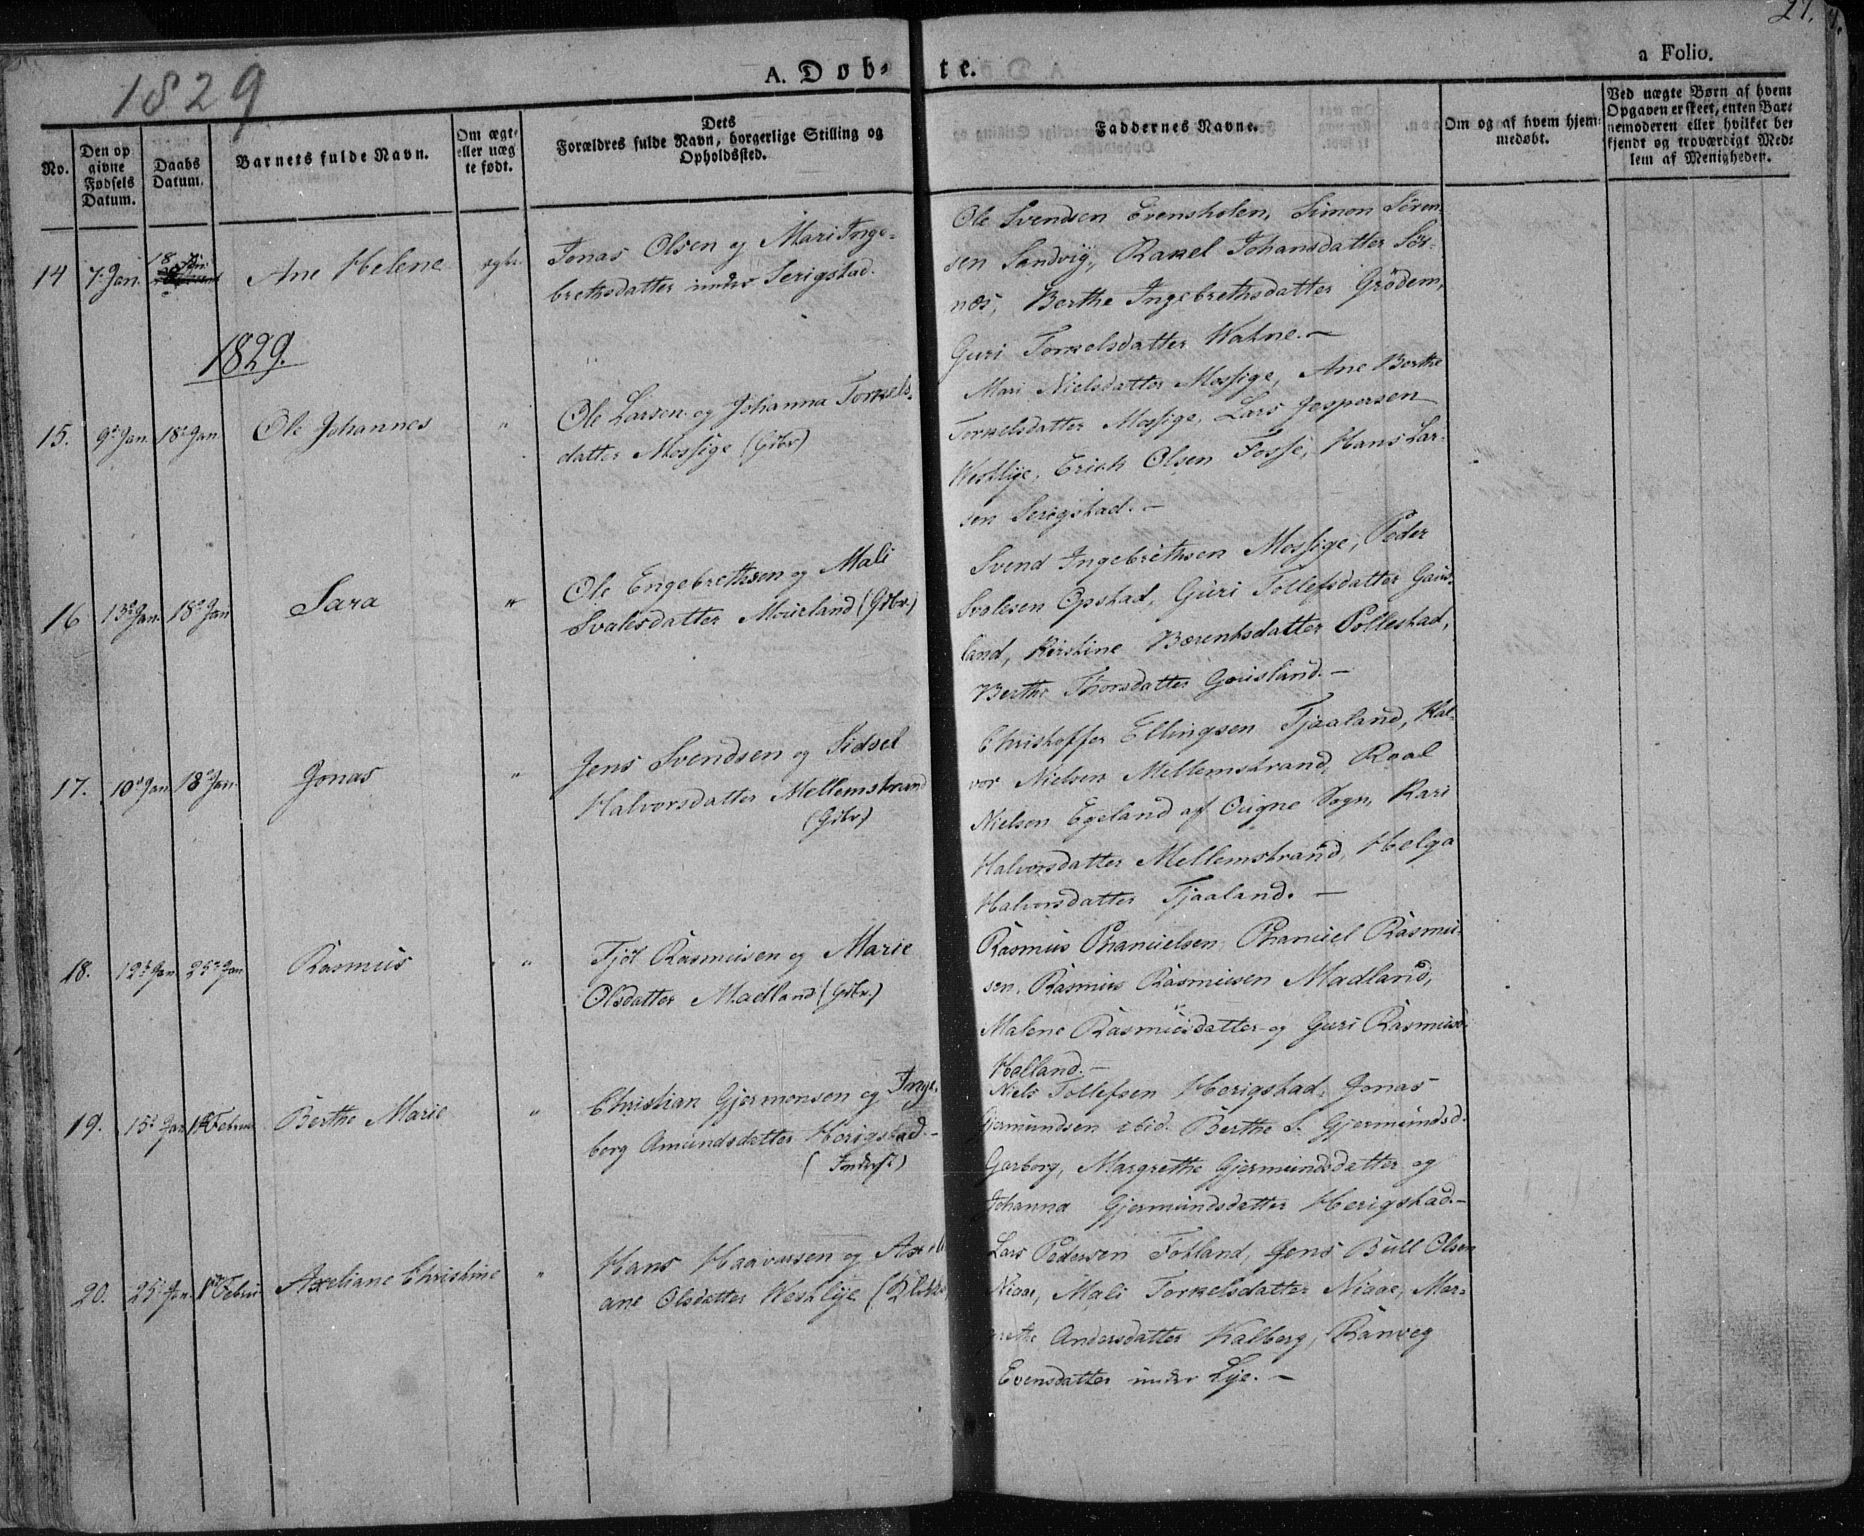 27.
1829
A. Døb-
te.
a Folio.
No.
Den op
givne
Fødsels
Datum.
Daabs
Datum.
Barnets fulde Navn.
Om ægte
eller uæg
te født.
Dets
Forældres fulde Navn, borgerlige Stilling og
Opholdssted.
Faddernes Navne.
Om og af hvem hjem-
medøbt.
Ved uægte Børn af hvem
Opgaven er skeet, enten Bar-
nemoderen eller hvilket be-
kjendt og troværdigt Med-
lem af Menigheden.
14
7. Jan.
18
Ane Helene
egte.
Jonas Olsen og Mari Inge-
brethsdatter under Serigstad.
Ole Svendsen Evensholen, Simon Sören-
sen Sandvig, Rakel Johansdatter Sör-
nes, Berthe Ingebrethsdatter Grödem,
Guri Torkelsdatter Watne.-
1829.
15.
9d Jan.
18d Jan
Ole Johannes
"
Ole Larsen og Johanna Torkels-
datter Mossige (Gbr)
Mari Nielsdatter Mossige, Ane Berthe
Torkelsdatter Mossige, Lars Jespersen
Westlije, Erich Olsen Fosse, Hans Lar-
sen Serigstad.-
16
13d Jan.
18d Jan
Sara
"
Ole Engebrethsen og Mali
Svalesdatter Moieland (Gbr.)
Svend Ingebrethsen Mossige, Peder
Svalesen Opstad, Guri Tollefsdatter Gaus-
land, Kirstine Bærentsdatter Pollestad,
Berthe Thorsdatter Gousland.-
17.
10d Jan
18d Jan.
Jonas
"
Jens Svendsen og Sidsel
Halvorsdatter Mellemstrand
(Gbr)
Christoffer Ellingsen Tjaaland, Hal-
vor Nielsen Mellemstrand, Roal
Nielsen Egeland af Ougne Sogn, Kari
Halvorsdatter Mellemstrand, Helga
Halvorsdatter Tjaaland.-
18.
12d Jan
25d Jan
Rasmus
"
Tjöl Rasmusen og Marie
Olsdatter Madland (Gbr.)
Rasmus Phanuelsen, Phanuel Rasmu-
sen, Rasmus Rasmusen Madland,
Malene Rasmusdatter og Guri Rasmusd.
Holland.-
19.
15d Jan
1d Februar
Berthe Marie
"
Christian Gjermonsen og Inge-
borg Amundsdatter Herigstad.-
(Inderst)
Niels Tollefsen Herigstad, Jonas
Gjermundsen ibid. Berthe S. Gjermundsd.
Garborg, Margrethe Gjermundsdatter og
Johanna Gjermundsdatter Herigstad.-
20.
25d Jan.
1d Februar
Axeliane Christine
"
Hans Haavarsen og Axeli-
ane Olsdatter Westlije
Lars Pedersen Totland, Jens Bull Olsen
Niaae, Mali Torkelsdatter Niaae, Mar-
grethe Andersdatter Kalberg, Ranveg
Evensdatter under Lye.-